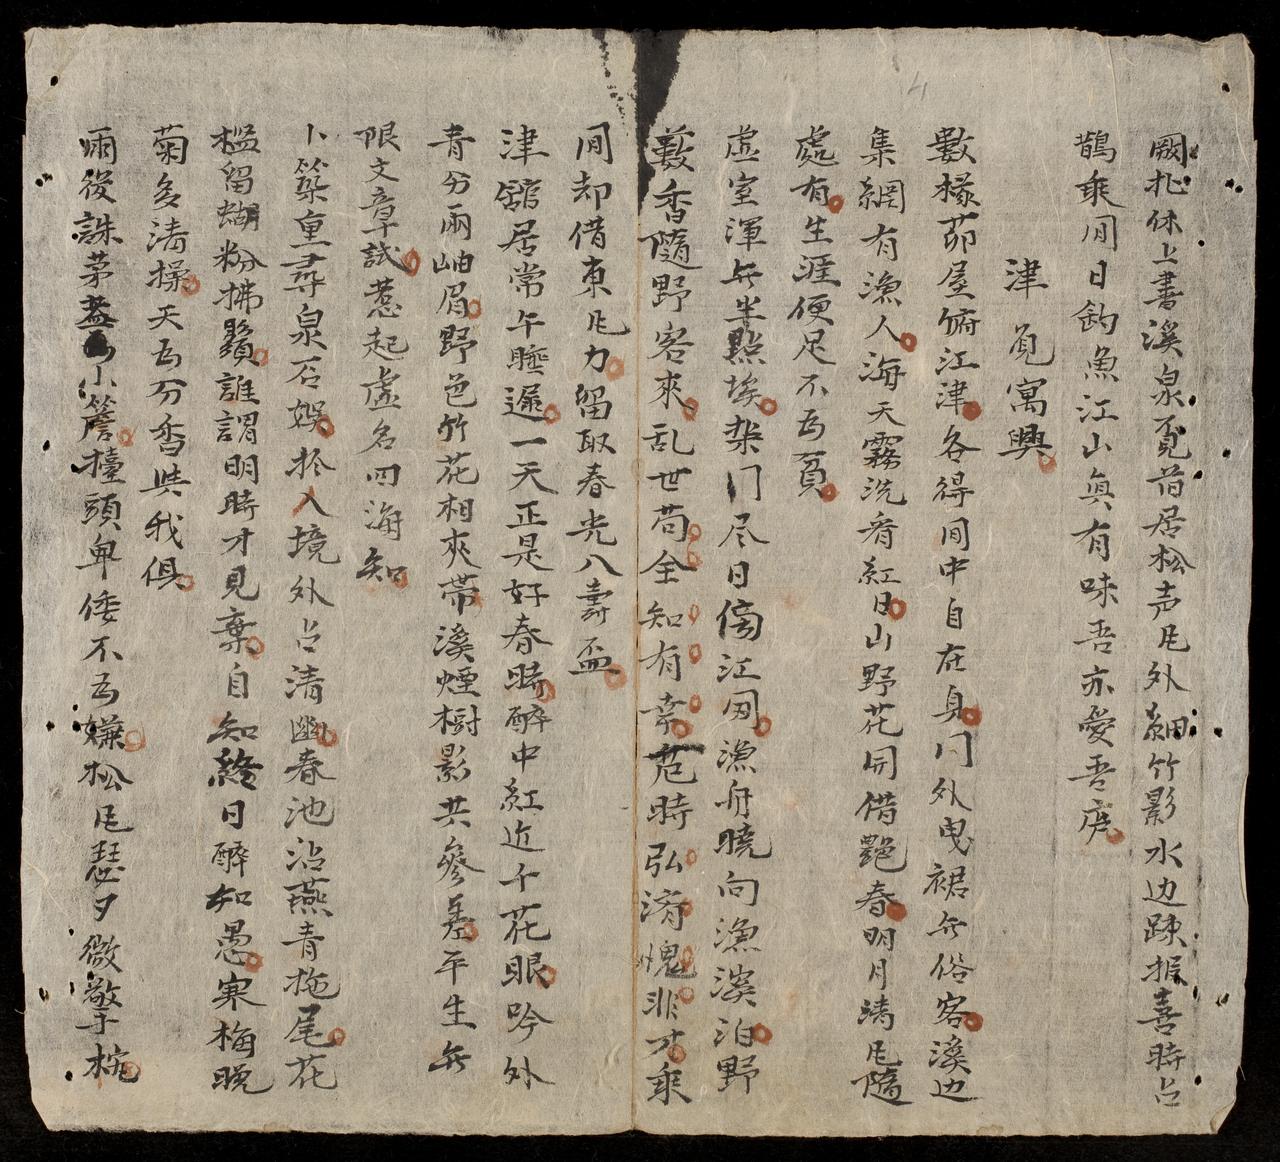 闕扎休上書溪泉覔首居松声凬外細竹影水边踈報喜時占
鵲乘间日釣魚江山真有味吾亦愛吾庐
津覔寓興
數椽茆屋俯江津各得间中自在身门外曳裾无俗客溪边
集網有漁人海天霧洗看紅日山野花開借艷春明月清凬隨
處有生涯便足不为貧
虚室渾无半點埃柴门尽日傍江囬漁舟曉向漁溪泊野
薮香隨野客來乱世苟全知有幸危時弘濟愧非才乘
间却借東凬力留取春光入壽盃
津舘居常午睡遲一天正是好春時醉中紅近千花眼吟外
青分兩岫眉野邑竹花相夾帶溪煙樹影共參差平生无
限文章試惹起虚名四海知
卜築重尋泉石娛於人境外占清幽春池沾燕青拖尾花
檻留蝴粉拂鬚誰謂明時才見棄自知終日醉如愚寒梅晚
菊多清操天为分香與我俱
雨後誅茅盖小簷檯頭卑倭不为嫌松凬瑟夕微擎枕